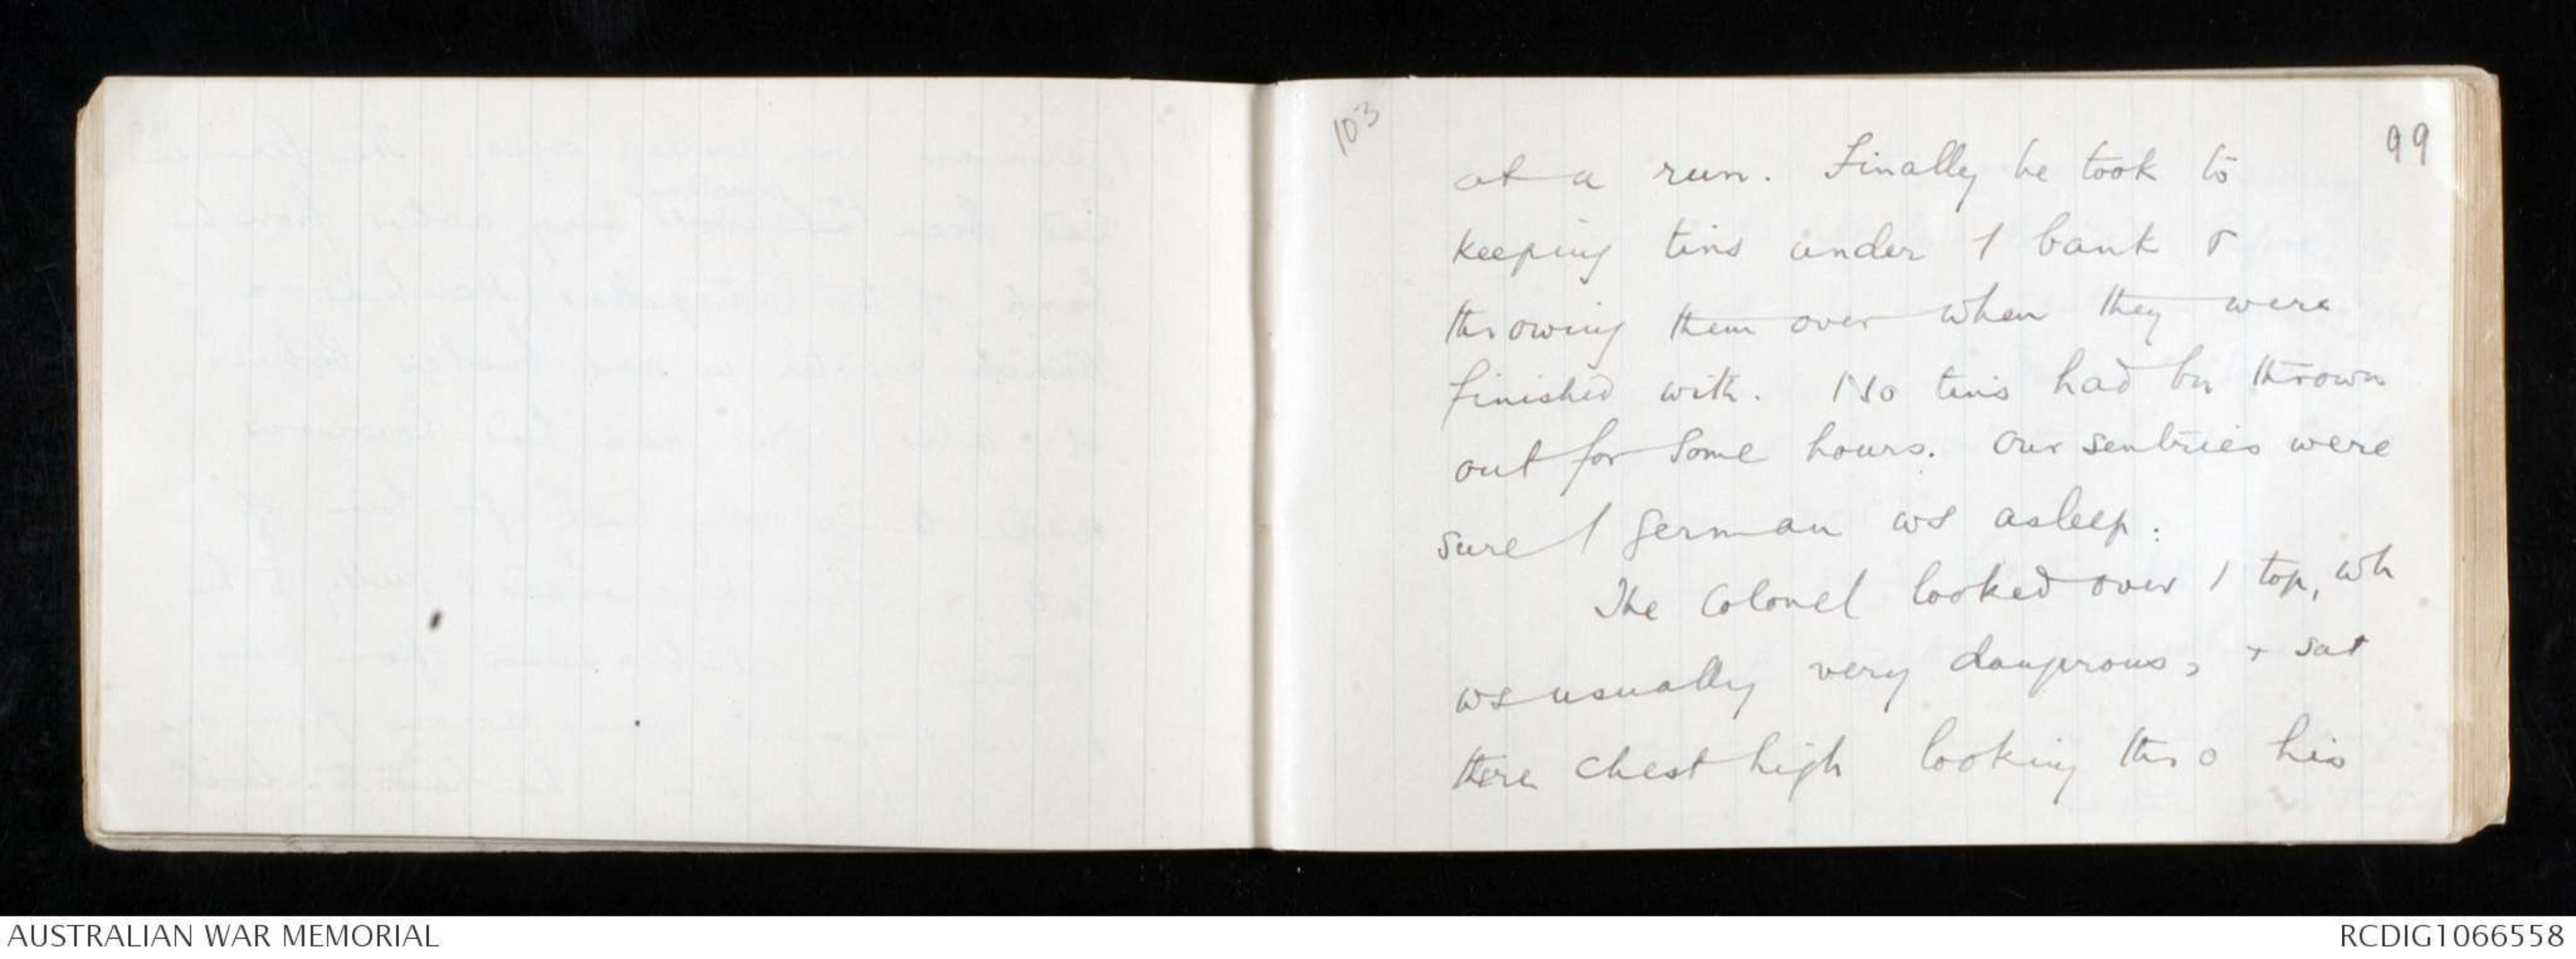 103
99
at a run. Finally he took to
keeping tins under / bank &
throwing them over when they were
finished with. No tins had bn thrown
out for some hours. Our sentries were
sure / German ws asleep.
The Colonel looked over / top, wh
ws usually very dangerous, + sat
there chest high looking thro his
AUSTRALIAN WAR MEMORIAL
RCDIG1066558